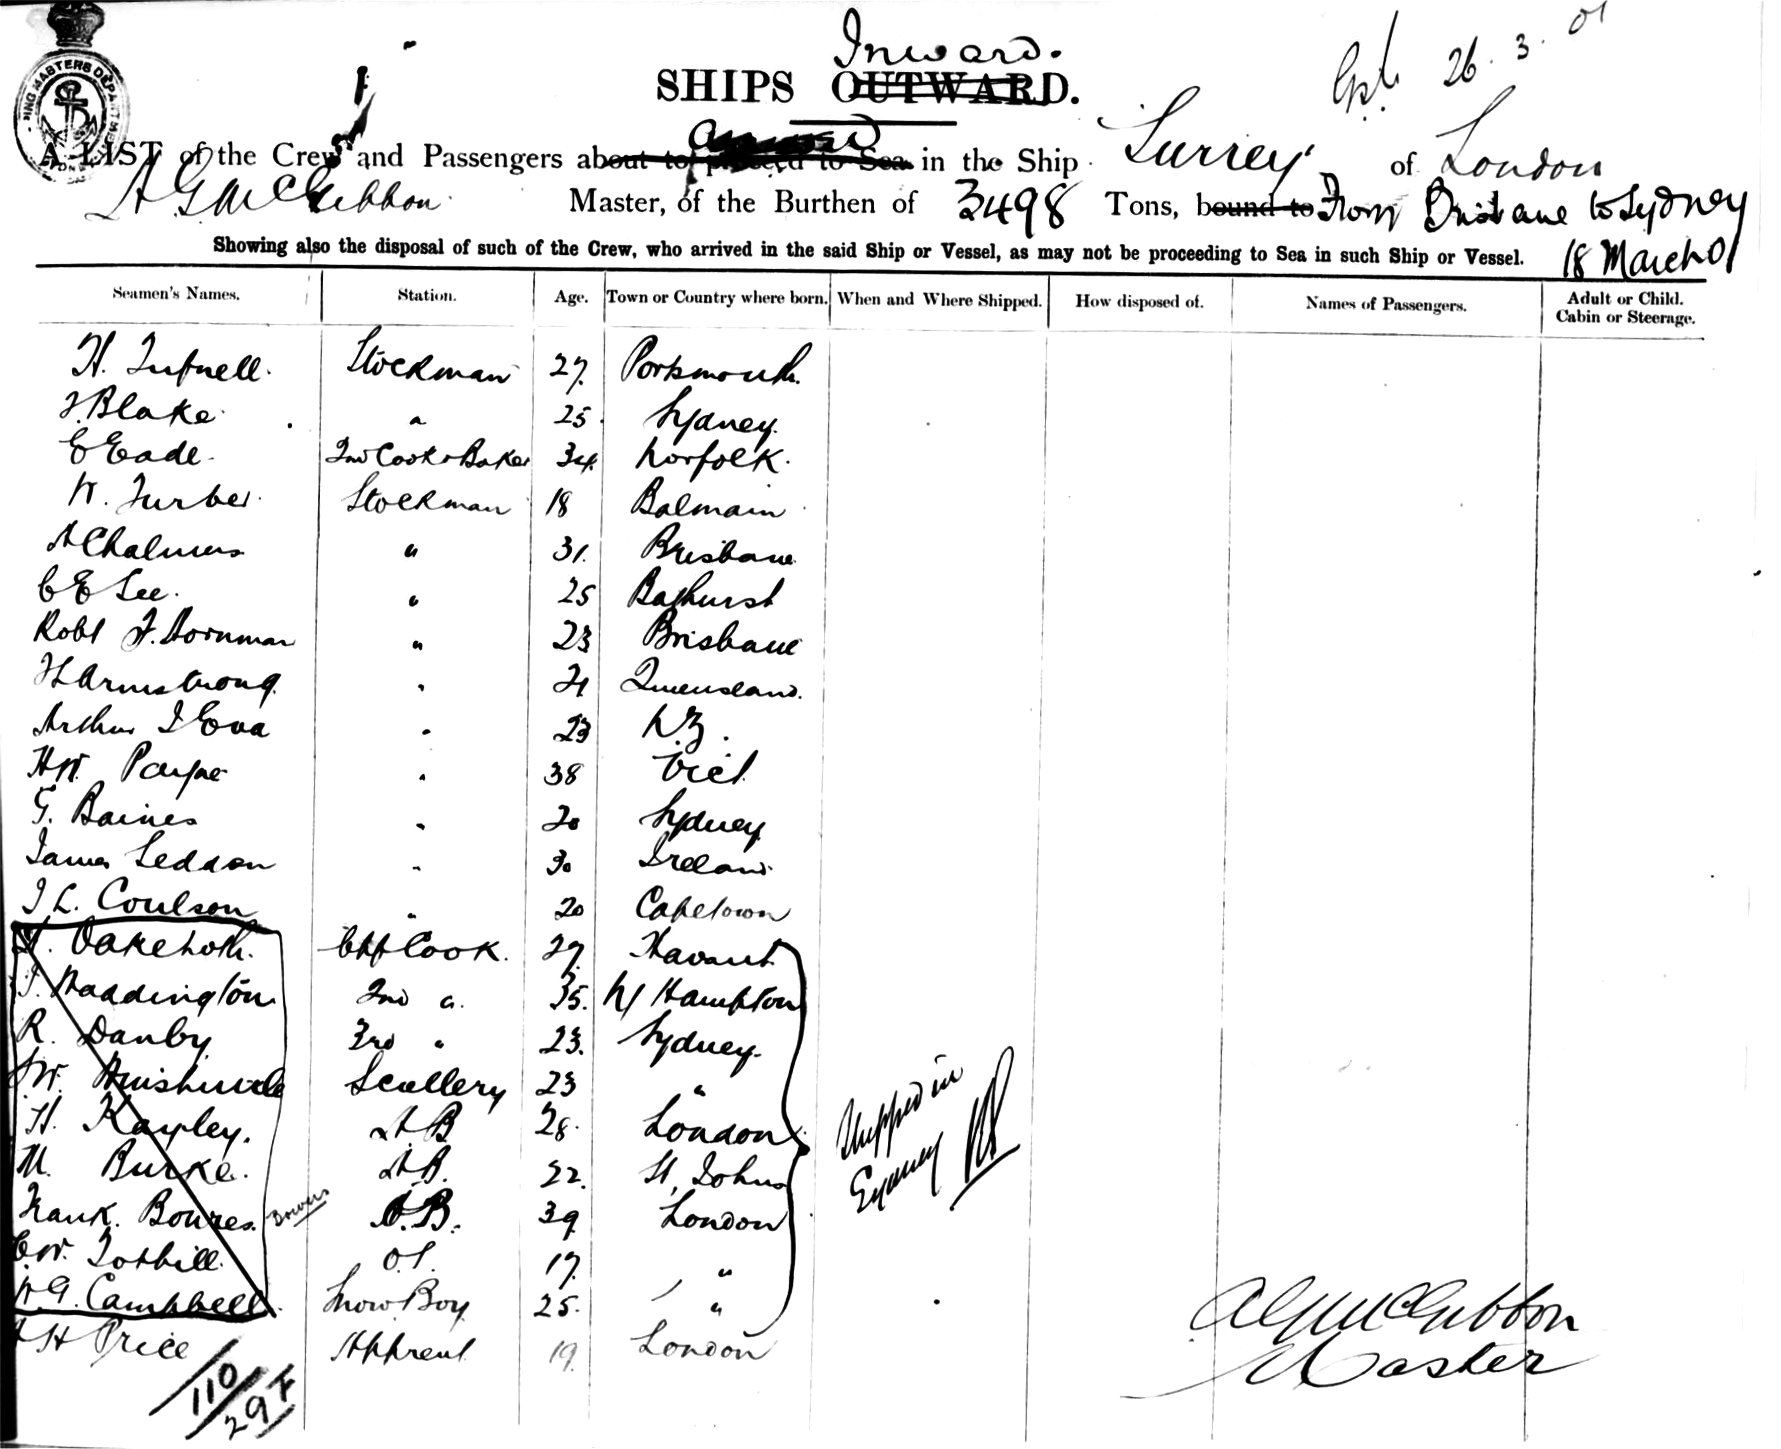 Inward.
SHIPS OUTWARD.
26. 3. 01
SHIPPING MASTERS DEPARTMENT
A LIST of the Crew and Passengers about to proceed to Sea in the Ship Surrey of London
A G McGibbon Master, of the Burthen of 3498 Tons, bound to From Brisbane to Sydney
Showing also the disposal of such of the Crew, who arrived in the said Ship or Vessel, as may not be proceeding to Sea in such Ship or Vessel. 18 March 01
Seamen's Names. Station. Age. Town or Country where born. When and Where Shipped. How disposed of. Names of Passengers. Adult or Child. Cabin or Steerage.
H. Tufnell. Stockman 27 Portsmouth.
Blake " 25 Sydney
E Eade. 2nd Cook & Baker 34 Norfolk.
W. Furber Stockman 18 Balmain
A Chalmers " 31. Brisbane
C E Lee. " 25 Bathurst
Robt F. Hornman " 23 Brisbane
H Armstrong " 21 Queensland.
Arthur J Eva " 23 N.Z.
H W. Payne " 38 Vict.
G. Baines " 20 Sydney
James Seddon " 30 Ireland
J L. Coulson " 20 Capetown
Oakeshott. Chf Cook. 27. Havant
Waddington 2nd " 35. N Hampton
R. Danby 3rd " 23. Sydney.
W. Scullery 23 "
H. Kayley. A B 28. London
M. Burke. A.B. 22. St. Johns
Frank. Bowres. Bowers A.B. 39 London
W. Tothill. O.S. 17. "
W. G. Campbell. Snow Boy 25. "
H Price Apprent 19. London
Shipped in
Sydney
A G McGibbon
Master
110
29 F